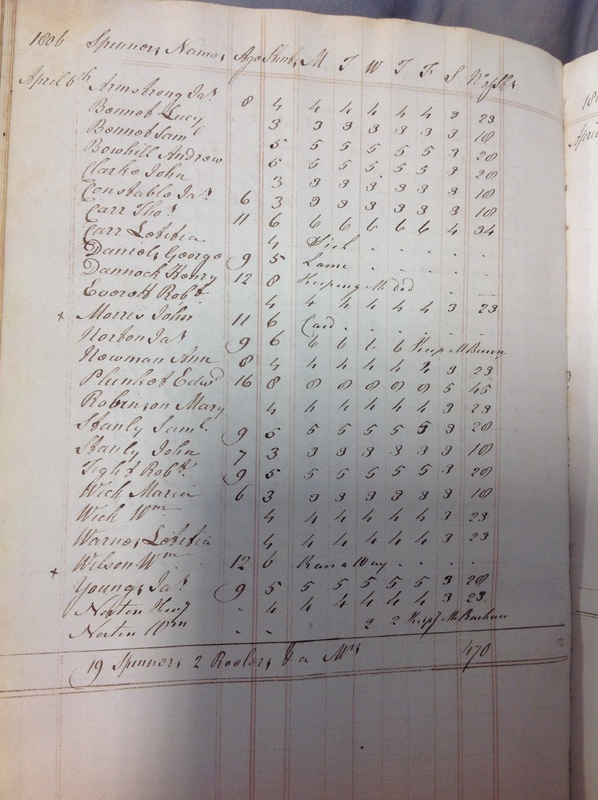 1806 Spinners Names Age Stint M T W T F S No of Sks
April 6th Armstrong Jas 8 4 4 4 4 4 4 3 23
Bennet Lucy 3 3 3 3 3 3 3 18
Bennet Saml 5 5 5 5 5 5 3 28
Bowhill Andrew 5 5 5 5 5 5 3 28
Clarke John 3 3 3 3 3 3 3 18
Constable Jas 6 3 3 3 3 3 3 3 18
Carr Thos 11 6 6 6 6 6 6 4 34
Carr Letitia 4 Sick
Daniels George 9 5 Lame
Dannock Henry 12 8 Keeping
Everett Robt 4 4 4 4 4 4 3 23
+ Morris John 11 6 Card
Norton Jas 9 6 6 6 6 6 Keep
Newman Ann 8 4 4 4 4 4 4 3 23
Plunket Edwd 16 8 8 8 8 8 8 5 45
Robinson Mary 4 4 4 4 4 4 3 23
Stanly Saml 9 5 5 5 5 5 5 3 28
Stanly John 7 3 3 3 3 3 3 3 18
Tight Robt 9 5 5 5 5 5 5 3 28
Wick Maria 6 3 3 3 3 3 3 3 18
Wick Wm 4 4 4 4 4 4 3 23
Warnes Letitia 4 4 4 4 4 4 3 23
+ Wilson Wm 12 6 Ran a Way
Youngs Jas 9 5 5 5 5 5 5 3 28
Norten Heny 4 4 4 4 4 4 3 23
Norten Wm 2 2
19 Spinners 2 Reelers 470